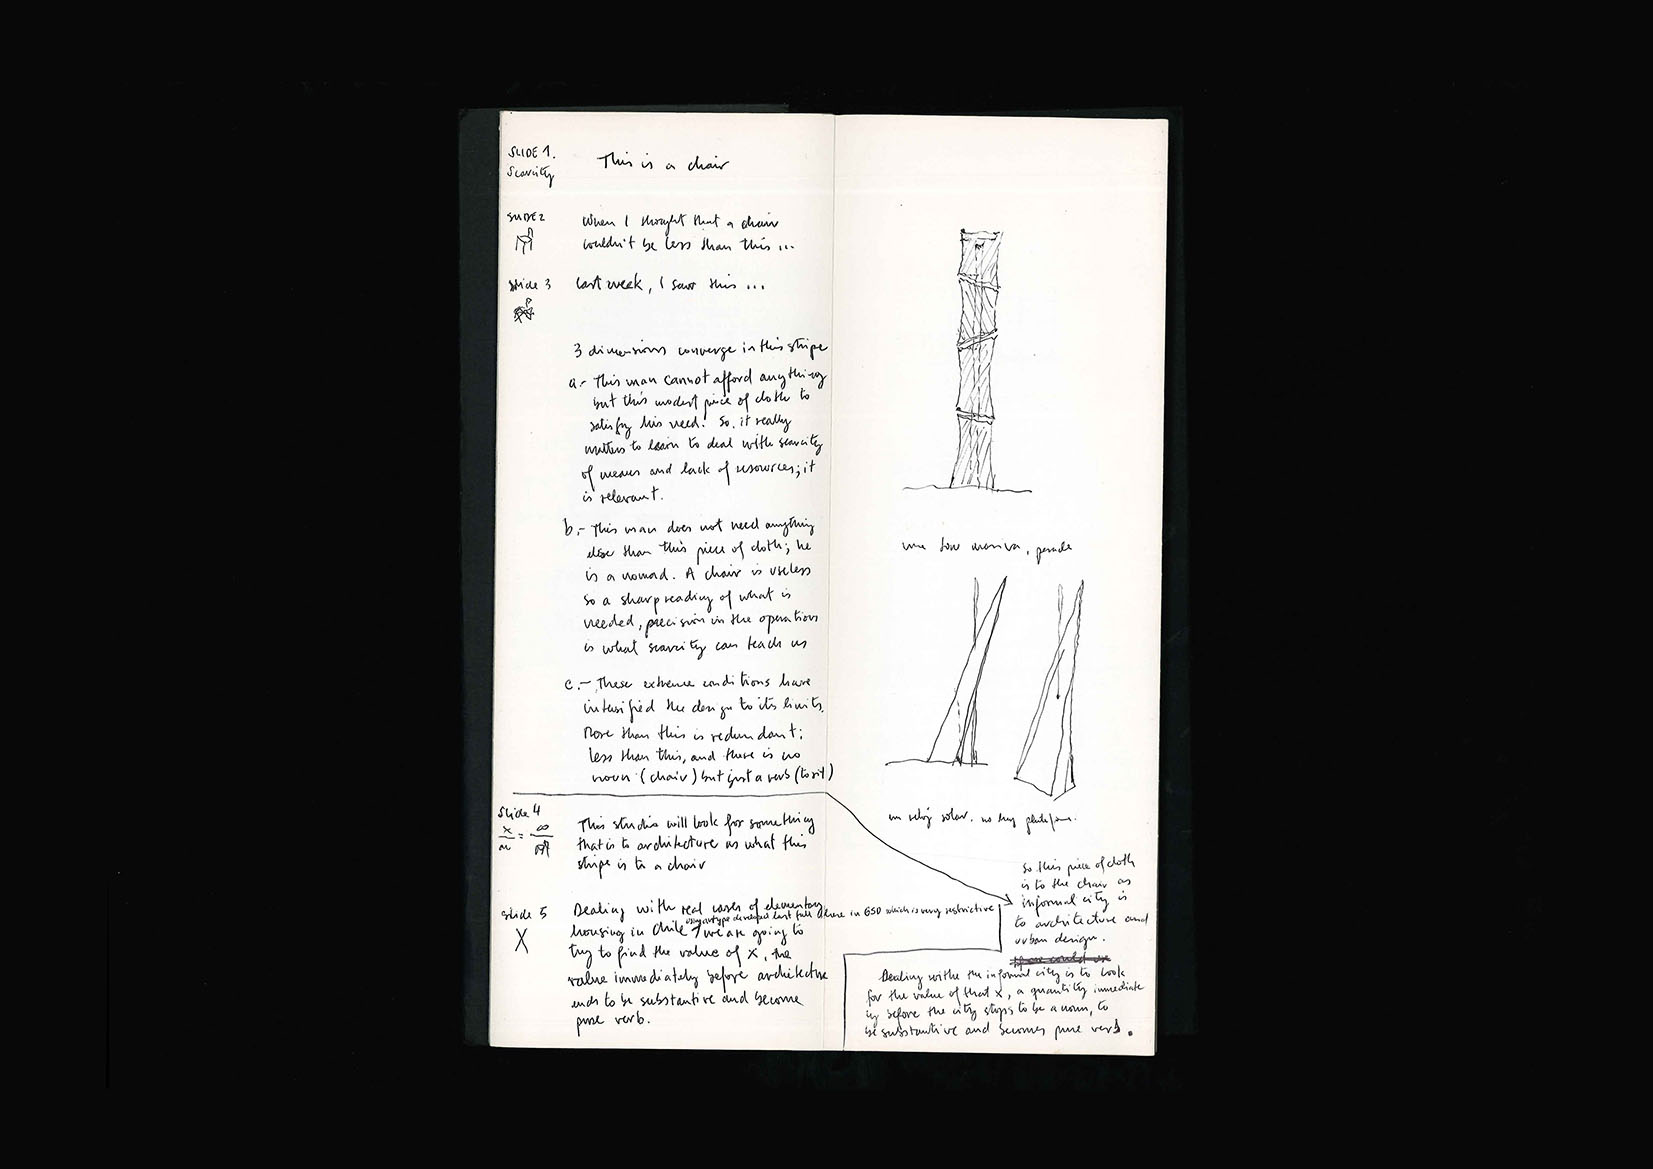 SLIDE 1.
Scarcity
This is a chair
SLIDE 2
When I thought that a chair
couldn't be less than this ...
Slide 3
last week, I saw this ...
3 dimensions converge in this stripe
a.- This man cannot afford anything
but this modest piece of cloth to
satisfy his need. So, it really
matters to learn to deal with scarcity
of means and lack of resources; it
is relevant.
b.- This man does not need anything
else than this piece of cloth; he
is a nomad. A chair is useless
so a sharp reading of what is
needed, precision in the operations
is what scarcity can teach us
c.- These extreme conditions have
intensified the design to its limits.
More than this is redundant;
less than this, and there is no
noun (chair) but just a verb (to sit)
Slide 4
x = ∞
This studio will look for something
that is to architecture as what this
stripe is to a chair
Slide 5
X
Dealing with real cases of elementary
developed last fall here in GSD which is very restrictive
housing in Chile, we are going to
try to find the value of x, the
value immediately before architecture
ends to be substantive and become
pure verb.
una torre masiva, pesada
un reloj solar. no hay
so this piece of cloth
is to the chair as
informal city is
to architecture and
urban design.
Dealing withe the informal city is to look
for the value of that x, a quantity immediate
ly before the city stops to be a noun, to
be substantive and becomes pure verb.